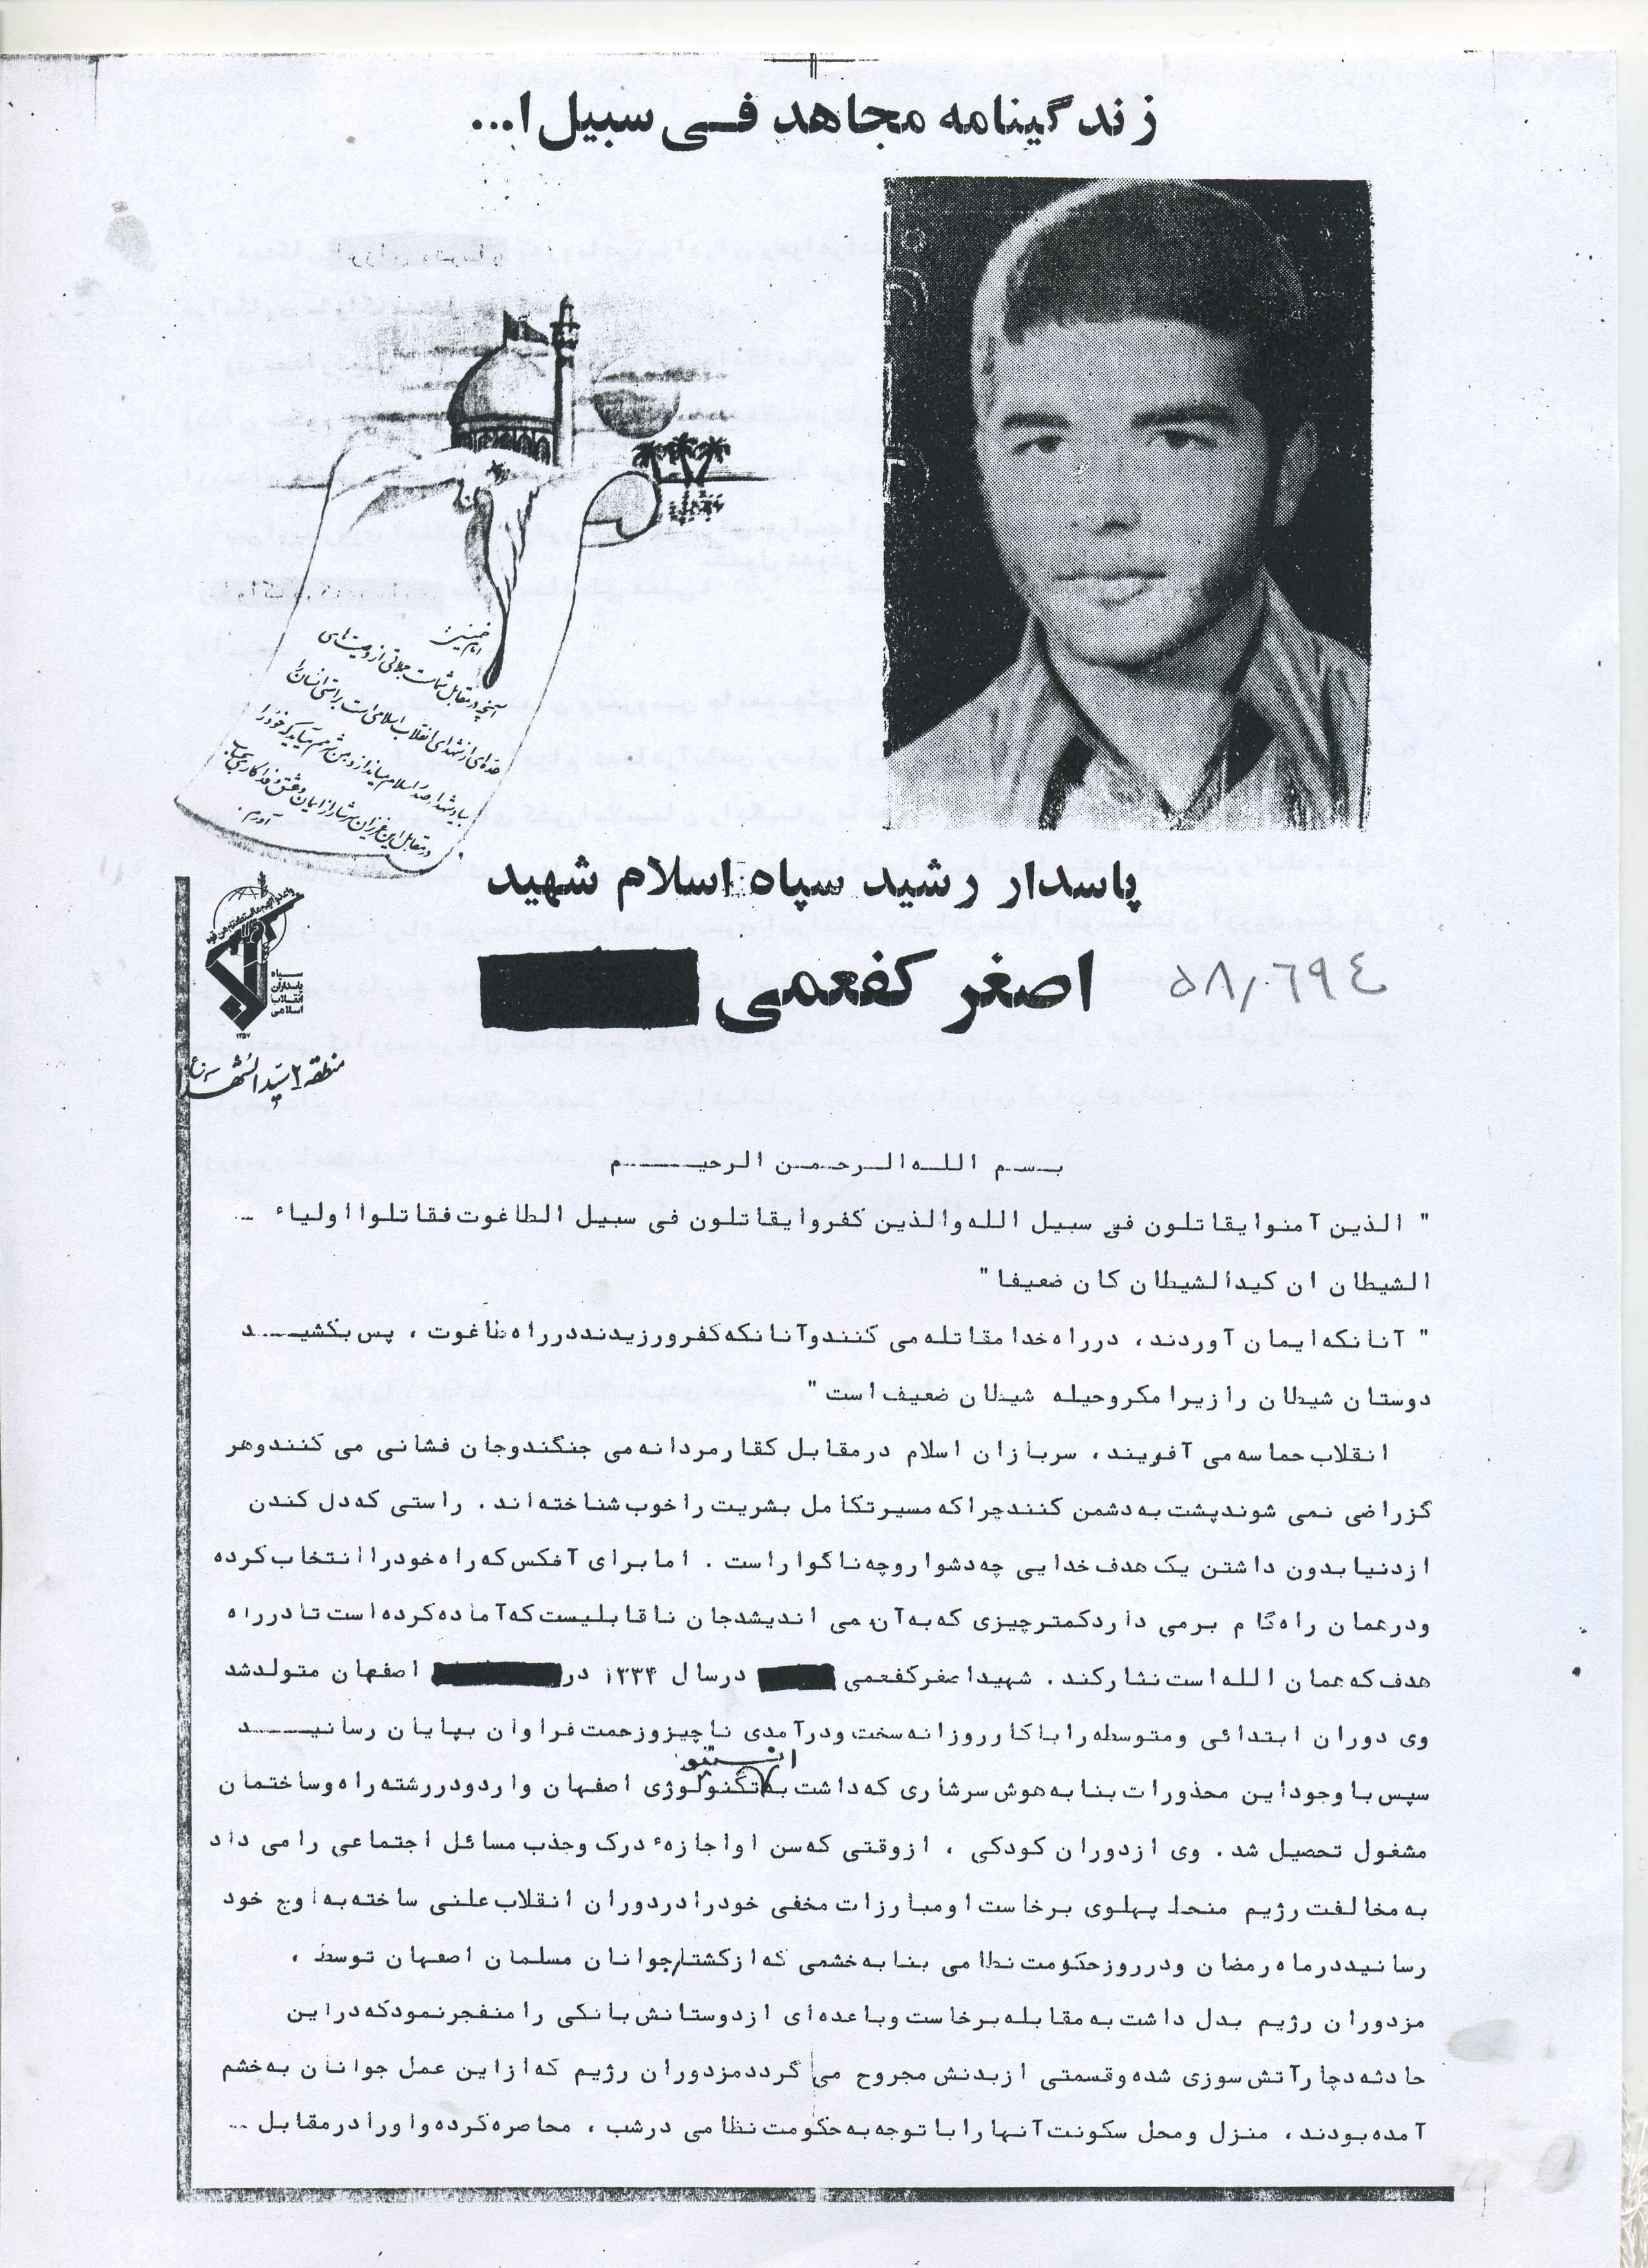 زندگینامه مجاهد فی سبیل ا...
امام خمینی:
آنچه در مقابل شماست جملاتی از وصیت‌های
عده‌ای از شهدای انقلاب اسلامی است براستی انسان را
بیاد شهدا صدر اسلام میاندازد و من شرمم میآید که خود را
در مقابل این عزیزان سرشار از ایمان و عشق و فداکاری بحساب
آورم.
پاسدار رشید سپاه اسلام شهید
اصغر کفعمی
۵۸/۶۹۴
سپاه
پاسداران
انقلاب
اسلامی
۱۳۵۷
منطقه ۲ سیدالشهداء
بسم الله الرحمن الرحیم
" الذین آمنوا یقاتلون فی سبیل الله والذین کفروا یقاتلون فی سبیل الطاغوت فقاتلوا اولیاء ـ
الشیطان ان کید الشیطان کان ضعیفا "
" آنانکه ایمان آوردند، در راه خدا مقاتله می کنند و آنانکه کفر ورزیدند در راه طاغوت ، پس بکشید
دوستان شیطان را زیرا مکر و حیله شیطان ضعیف است "
انقلاب حماسه می آفریند، سربازان اسلام در مقابل کفار مردانه می جنگند و جان فشانی می کنند و هر
گز راضی نمی شوند پشت به دشمن کنند چرا که مسیر تکامل بشریت را خوب شناخته اند . راستی که دل کندن
از دنیا بدون داشتن یک هدف خدایی چه دشوار و چه ناگوار است . اما برای آنکس که راه خود را انتخاب کرده
و در همان راه گام بر می دارد کمتر چیزی که به آن می اندیشد جان ناقابلیست که آماده کرده است تا در راه
هدف که همان الله است نثار کند . شهید اصغر کفعمی در سال ۱۳۳۴ در اصفهان متولد شد
وی دوران ابتدائی و متوسطه را با کار روزانه سخت و درآمدی ناچیز و زحمت فراوان بپایان رسانید
سپس با وجود این محذورات بنا به هوش سرشاری که داشت به انستیتو تکنولوژی اصفهان وارد و در رشته راه و ساختمان
مشغول تحصیل شد . وی از دوران کودکی ، از وقتی که سن او اجازهٔ درک و جذب مسائل اجتماعی را می داد
به مخالفت رژیم منحط پهلوی برخاست او مبارزات مخفی خود را در دوران انقلاب علنی ساخته به اوج خود
رسانید در ماه رمضان و در روز حکومت نظامی بنا به خشمی که از کشتار جوانان مسلمان اصفهان توسط ،
مزدوران رژیم بدل داشت به مقابله برخاست و با عده ای از دوستانش بانکی را منفجر نمود که در این
حادثه دچار آتش سوزی شده و قسمتی از بدنش مجروح می گردد مزدوران رژیم که از این عمل جوانان به خشم
آمده بودند ، منزل و محل سکونت آنها را با توجه به حکومت نظامی در شب ، محاصره کرده و او را در مقابل ...